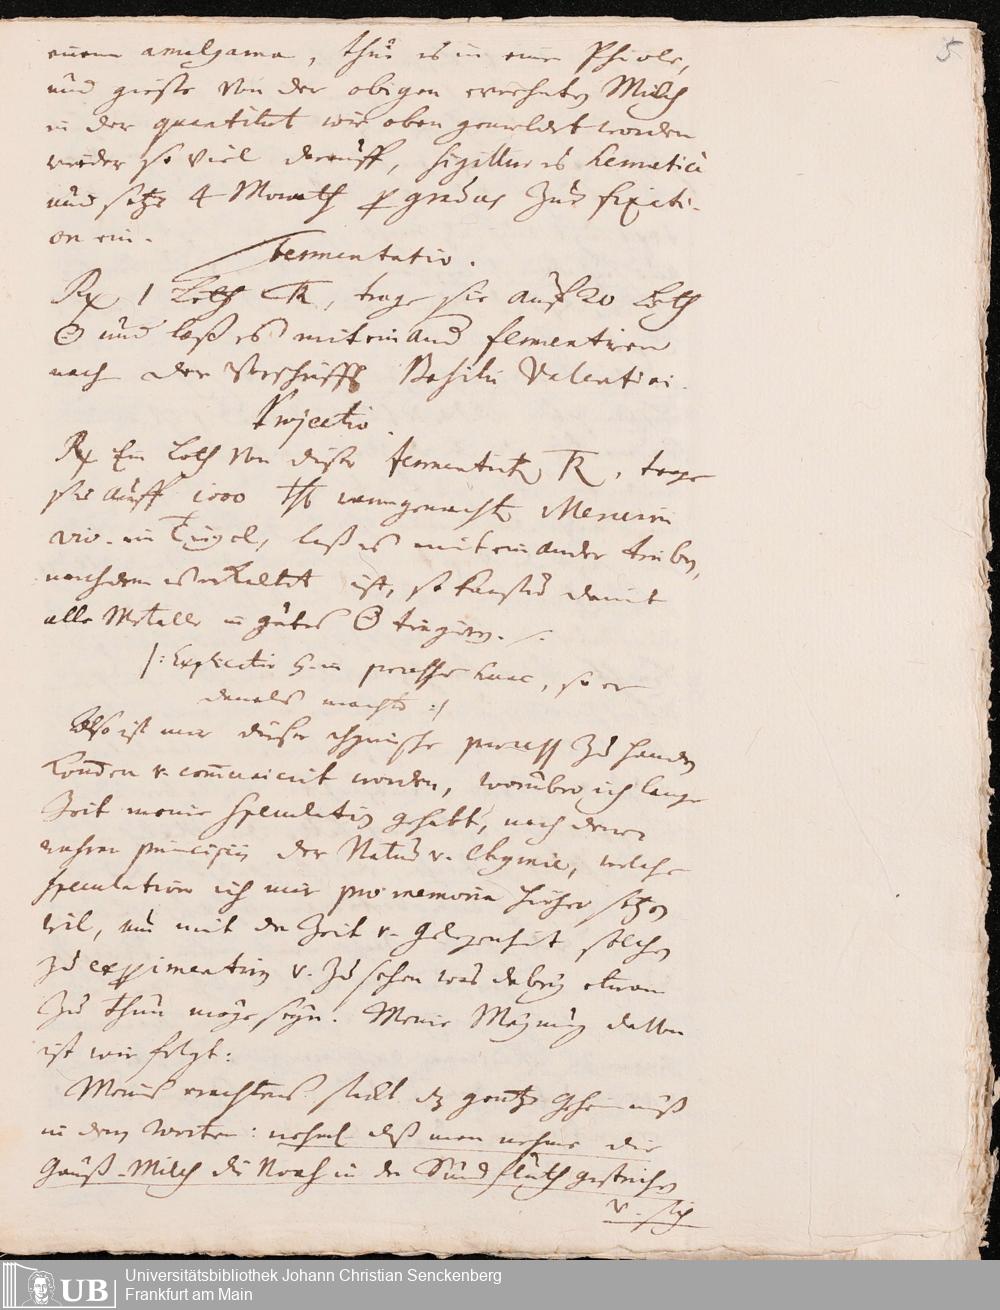 5
einem amalgama, thue es in eine Phiole,
und gieße von der obigen Milch
in der quantitet wie oben gemeldet worden
wieder so viel darauff, sigillir es hermeticè
und setze 4 Monath gradus zur fixati-
on ein.
Fermentatio.
Rx 1 Loth TR, trage sie auff 20 Loth
☉ und laß es miteinand fermentiren
nach der Vorschrifft Basilii Valentini.
Projectio.
Rx Ein Loth von dieser fermentirten TR, trage
sie auff 1000 warmgemachten Mercurii
viv. im Tiegel, laß es mit einander treiben,
nachdem es erkaltet ist, so kanstu damit
alle Metalle in gutes ☉ tingiren.
/: Explicatio so er
damals machte :/
Also ist mir dieser chymische process zu handen
kommen v. communicirt worden, worüber ich lange
Zeit meine speculation gehabt, nach denen
wahren principiis der Natur v. Chymie, welche
speculation ich mir pro memoria hieher setzen
wil, um mit der Zeit v. gelegenheit solches
zu experimentiren v. zu sehen was dabey etwan
zu thun möge seyn. Meine Meynung davon
ist wie folgt:
Meines erachtens steckt dz gantze Geheimnüß
in den worten: daß man nehme die
Milch die Noah in der Sündfluth gestrichen
v. sich
Universitätsbibliothek Johann Christian Senckenberg
Frankfurt am Main
UB